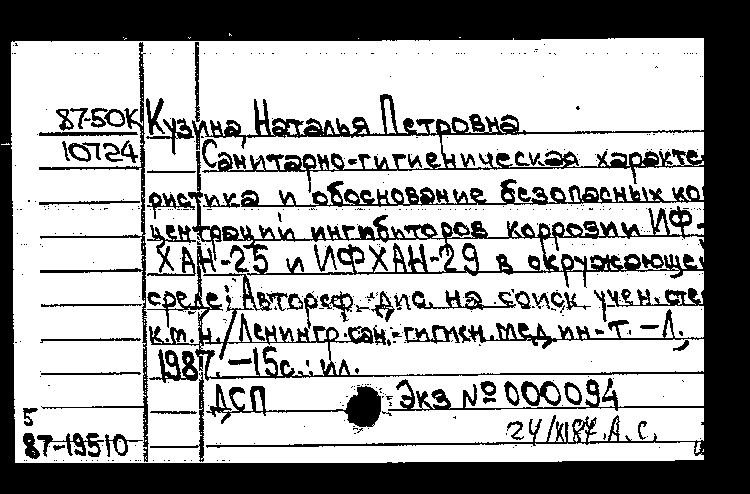 87-50К Кузина, Наталья Петровна.
10724 Санитарно-гигиеническая характе
ристика и обоснование безопасных кон
центраций ингибиторов коррозии ИФ-
ХАН-25 и ИФХАН-29 в окружающей
среде: Автореф. дис. на соиск. учен. степ
к.м.н. / Ленингр. сан.-гигиен. мед. ин-т. – Л.,
1987. – 15с.: ил.
ДСП Экз № 000094
5
87-19510 24/XI87. А.С.